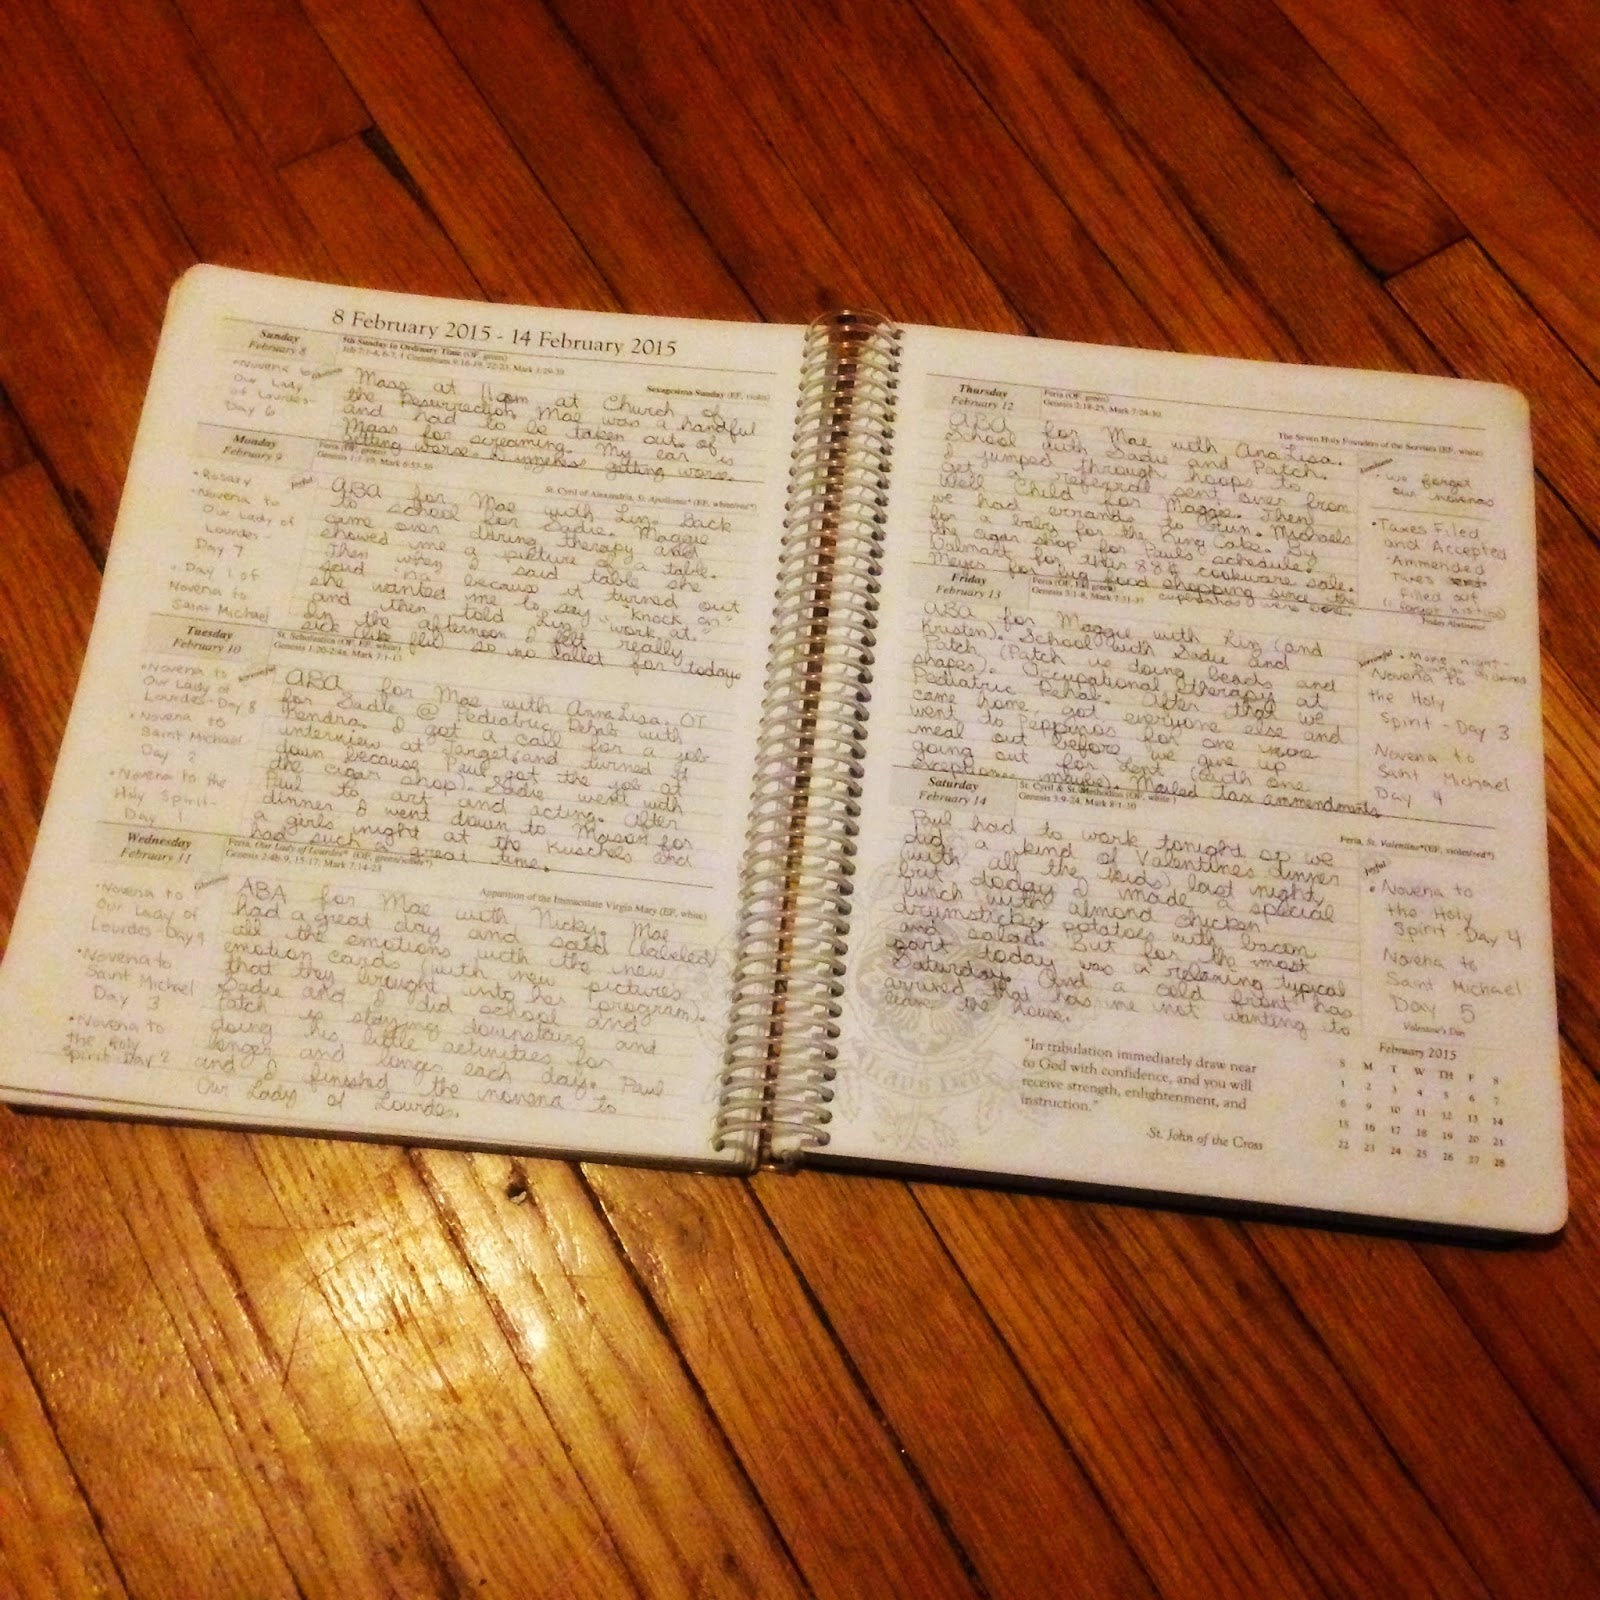 8 February 2015 - 14 February 2015
Sunday
February 8
5th Sunday in Ordinary Time (OF, green)
Job 7:1-4, 6-7, 1 Corinthians 9:16-19, 22-23, Mark 1:29-39
Sexagesima Sunday (EF, violet)
• Novena to
Our Lady
of Lourdes-
Day 6
Mass at at Church of
the Resurrection. Mae was a handful
and had to be taken out of
Mass for screaming. My ear is
getting worse. getting worse.
Monday
February 9
Feria (OF, green)
Genesis 1:1-19, Mark 6:53-56
St. Cyril of Alexandria, St. Apollonia* (EF, white/red*)
Joyful
• Rosary
• Novena to
Our Lady of
Lourdes-
Day 7
• Day 1 of
Novena to
Saint Michael
ABA for Mae with Liz. Back
to school for Sadie. Maggie
came over during therapy and
showed me a picture of a table.
Then when I said table she
said "na" because it turned out
she wanted me to say "knock on"
and then told Liz "work at."
In the afternoon I felt really
sick (like flu) so no ballet for today.
Tuesday
February 10
St. Scholastica (OF, white)
Genesis 1:20-2:4a, Mark 7:1-13
Sorrowful
• Novena to
Our Lady of
Lourdes-Day 8
• Novena to
Saint Michael
Day 2
• Novena to the
Holy Spirit-
Day 1
ABA for Mae with AnnaLisa. OT
for Sadie @ Pediatric Rehab with
Kendra. I got a call for a job
interview at Target (and turned it
down because Paul got the job at
the cigar shop). Sadie went with
Paul to art and acting. After
dinner I went down to Mason for
a girls night at the Kuschels and
had such a great time.
Wednesday
February 11
Feria, Our Lady of Lourdes* (OF, green/white*)
Genesis 2:4b-9, 15-17; Mark 7:14-23
Apparition of the Immaculate Virgin Mary (EF, white)
Glorious
• Novena to
Our Lady of
Lourdes-Day 9
• Novena to
Saint Michael
Day 3
• Novena to
the Holy
Spirit-Day 2
ABA for Mae with Nicky. Mae
had a great day and said (labeled)
all the emotions with the new
emotion cards (with new pictures
that they brought into her program).
Sadie and I did school and
Patch is staying downstairs and
doing his little activities for
longer and longer each day. Paul
and I finished the novena to
Our Lady of Lourdes.
Thursday
February 12
Feria (OF, green)
Genesis 2:18-25, Mark 7:24-30
The Seven Holy Founders of the Servites (EF, white)
• We forgot
our novenas
• Taxes Filed
and Accepted
- Ammended
Taxes
Filled out
ABA for Mae with AnaLisa.
School with Sadie and Patch.
I jumped through hoops to
get a referral sent over from
Well Child for Maggie. Then
we had errands to run. Michaels
for a baby for the King Cake. By
the cigar shop for Paul's schedule.
Walmart for their 88¢ cookware sale.
Meyer for big food shopping since the
cupboards were bare.
Friday Abstinence
Friday
February 13
Feria (OF, green)
Genesis 3:1-8, Mark 7:31-37
Sorrowful
Novena to
the Holy
Spirit - Day 3
Novena to
Saint Michael
Day 4
ABA for Maggie with Liz (and
Kristen). School with Sadie and
Patch. (Patch is doing beads and
shapes). Occupational therapy at
Pediatric Rehab. After that we
came home, got everyone else and
went to Peppinos for one more
meal out before we give up
going out for Lent (with one
exception, maybe). Mailed tax ammendments.
Saturday
February 14
St. Cyril & St. Methodius (OF, white)
Genesis 3:9-24, Mark 8:1-10
Feria, St. Valentine* (EF, violet/red*)
Joyful
• Novena to
the Holy
Spirit-Day 4
Novena to
Saint Michael
Day 5
Paul had to work tonight so we
did a kind of Valentines dinner
(with all the kids) last night,
but today I made a special
lunch with almond chicken
drumsticks, potatoes with bacon
and salad. But for the most
part today was a relaxing typical
Saturday. And a cold front has
arrived that has me not wanting to
leave the house.
Valentine's Day
"In tribulation immediately draw near
to God with confidence, and you will
receive strength, enlightenment, and
instruction."
-St. John of the Cross
February 2015
S M T W TH F S
1 2 3 4 5 6 7
8 9 10 11 12 13 14
15 16 17 18 19 20 21
22 23 24 25 26 27 28